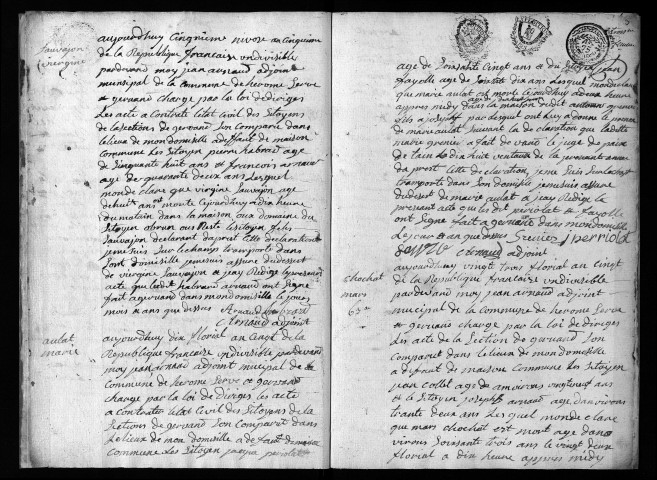 Sauvajon
virgine
aujourdhuy cinquieme nivose an cinquieme
de la Republique francaise indivisible
pardevand moy jean arnaud adjoint
municipal de la commune de herome Serve
& gervand charge par la loi de diriges
Les acte a contrete letat Civil des Sitoyens
de la Sections de gervand Son Comparu dans
Lelieu de mon domisille adeffaite de maison
Commune Les Sitoyen pierre habrard age
de Sinquante huit ans et francois arnaud
age de quarante deux ans Lesquel
monde clare que virgine Sauvajon age
de huit ans morte cejourdhuy a dix heure
du matain dans la maison aux domaine du
Sitoyen
Sauvajon declarant daprest Cette declaration
jeme Suis Sur le champ transporte dans
Sont domisille jeme suis assure du dessest
de virgine Sauvajon & jeay Redige le present
acte que Ledit habrard arnaud ont Signe
fait a gervand dans mon domisille Le jour
mois & an que dessus Arnaud habrard
Arnaud adjoint
aulat
marie
aujourdhuy dix florial an cinqt de la
Republique francaise indivisible pardevand
moy jean arnaud adjoint municipal de la
Commune de herome Serve & gervand
charge par la loi de diriges les acte
a contrates letat Civil des Sitoyens de la
Sections de gervand Son Comparu dans
Lelieu de mon domisille a de faut de maison
Commune Les Sitoyen jacque periolat
age de Soisante Cinqt ans & du Sitoyen jean
fayolle age de Soisante dix ans Lesquel monde clare
que marie aulat est morte Cejourdhuy a deux heure
appres midy dans la maison dudit
fils a joseph par lesquel ont luy a donne le prenom
de marie aulat Suivant la de claration que ladette
grenier a fait de vant le juge de paice
de tain le dix huit ventause de la presante annee
da prest Cette declaration jeme Suis Surlechamp
transporte dans Son domisille jeme suis assure
du dessest de marie aulat & jeay Redige le
presant acte que les dit periolat & fayolle
ont Signe fait a gervant dans mon domisille
Le jour & an que dessus Grenier j perriolat
Arnaud adjoint
chochat
mars
63 an
aujourdhuy vingt trois florial an cinqt
de la Republique francaise indivisible
pardevand moy jean arnaud adjoint
municipal de la commune de herome Serve
& gervans charge par la loi de diriges
Les acte de la Section de gervand Son
Comparet dans Lelieu de mon domisille
a defaut de maison Commune Les Sitoyen
jean collet age de anvirons vingt neuf ans
et le Sitoyen joseph arnaud age danvirons
trante deux ans Lesquel monde clare
que mars chochat est mort age dans
virons Soissant trois ans le vingt deux
florial a dix heure appres midy